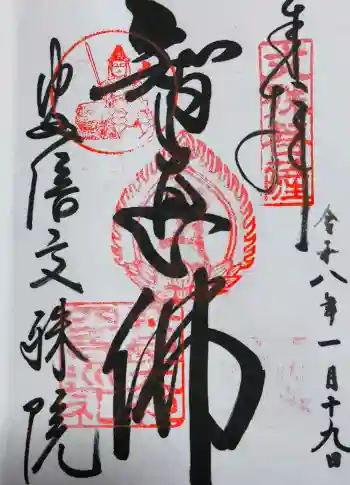 奉拝
令和八年一月十九日
智母佛
安倍文殊院